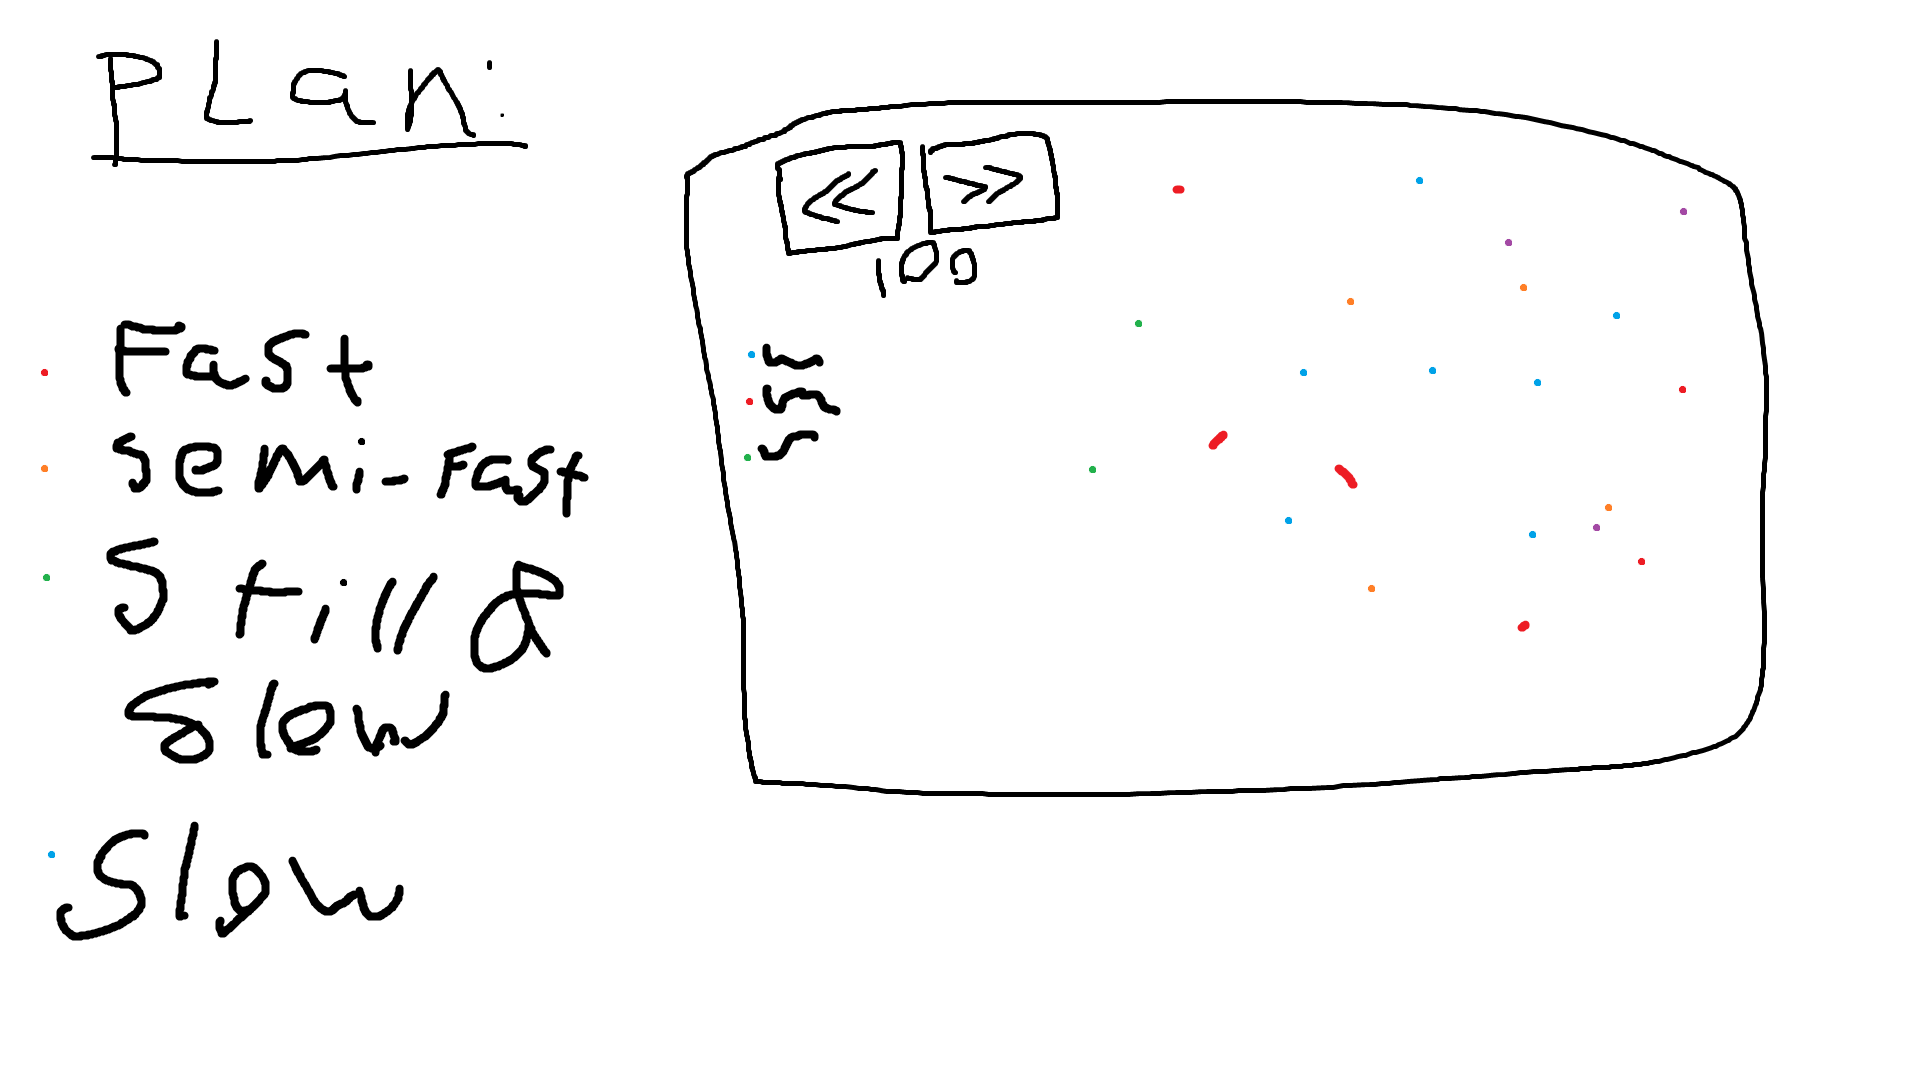 Plan:
Fast
semi-Fast
Still &
Slow
Slow
<< >>
100